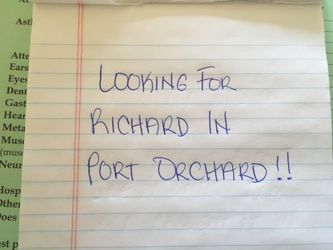 Asti
Atte
Ears
Eyes
Dent
Gast
Hear
Meta
Musc
(musc
Neur
Hosp
Other
Does
ust p
LOOKING FOR
RICHARD IN
PORT ORCHARD!!